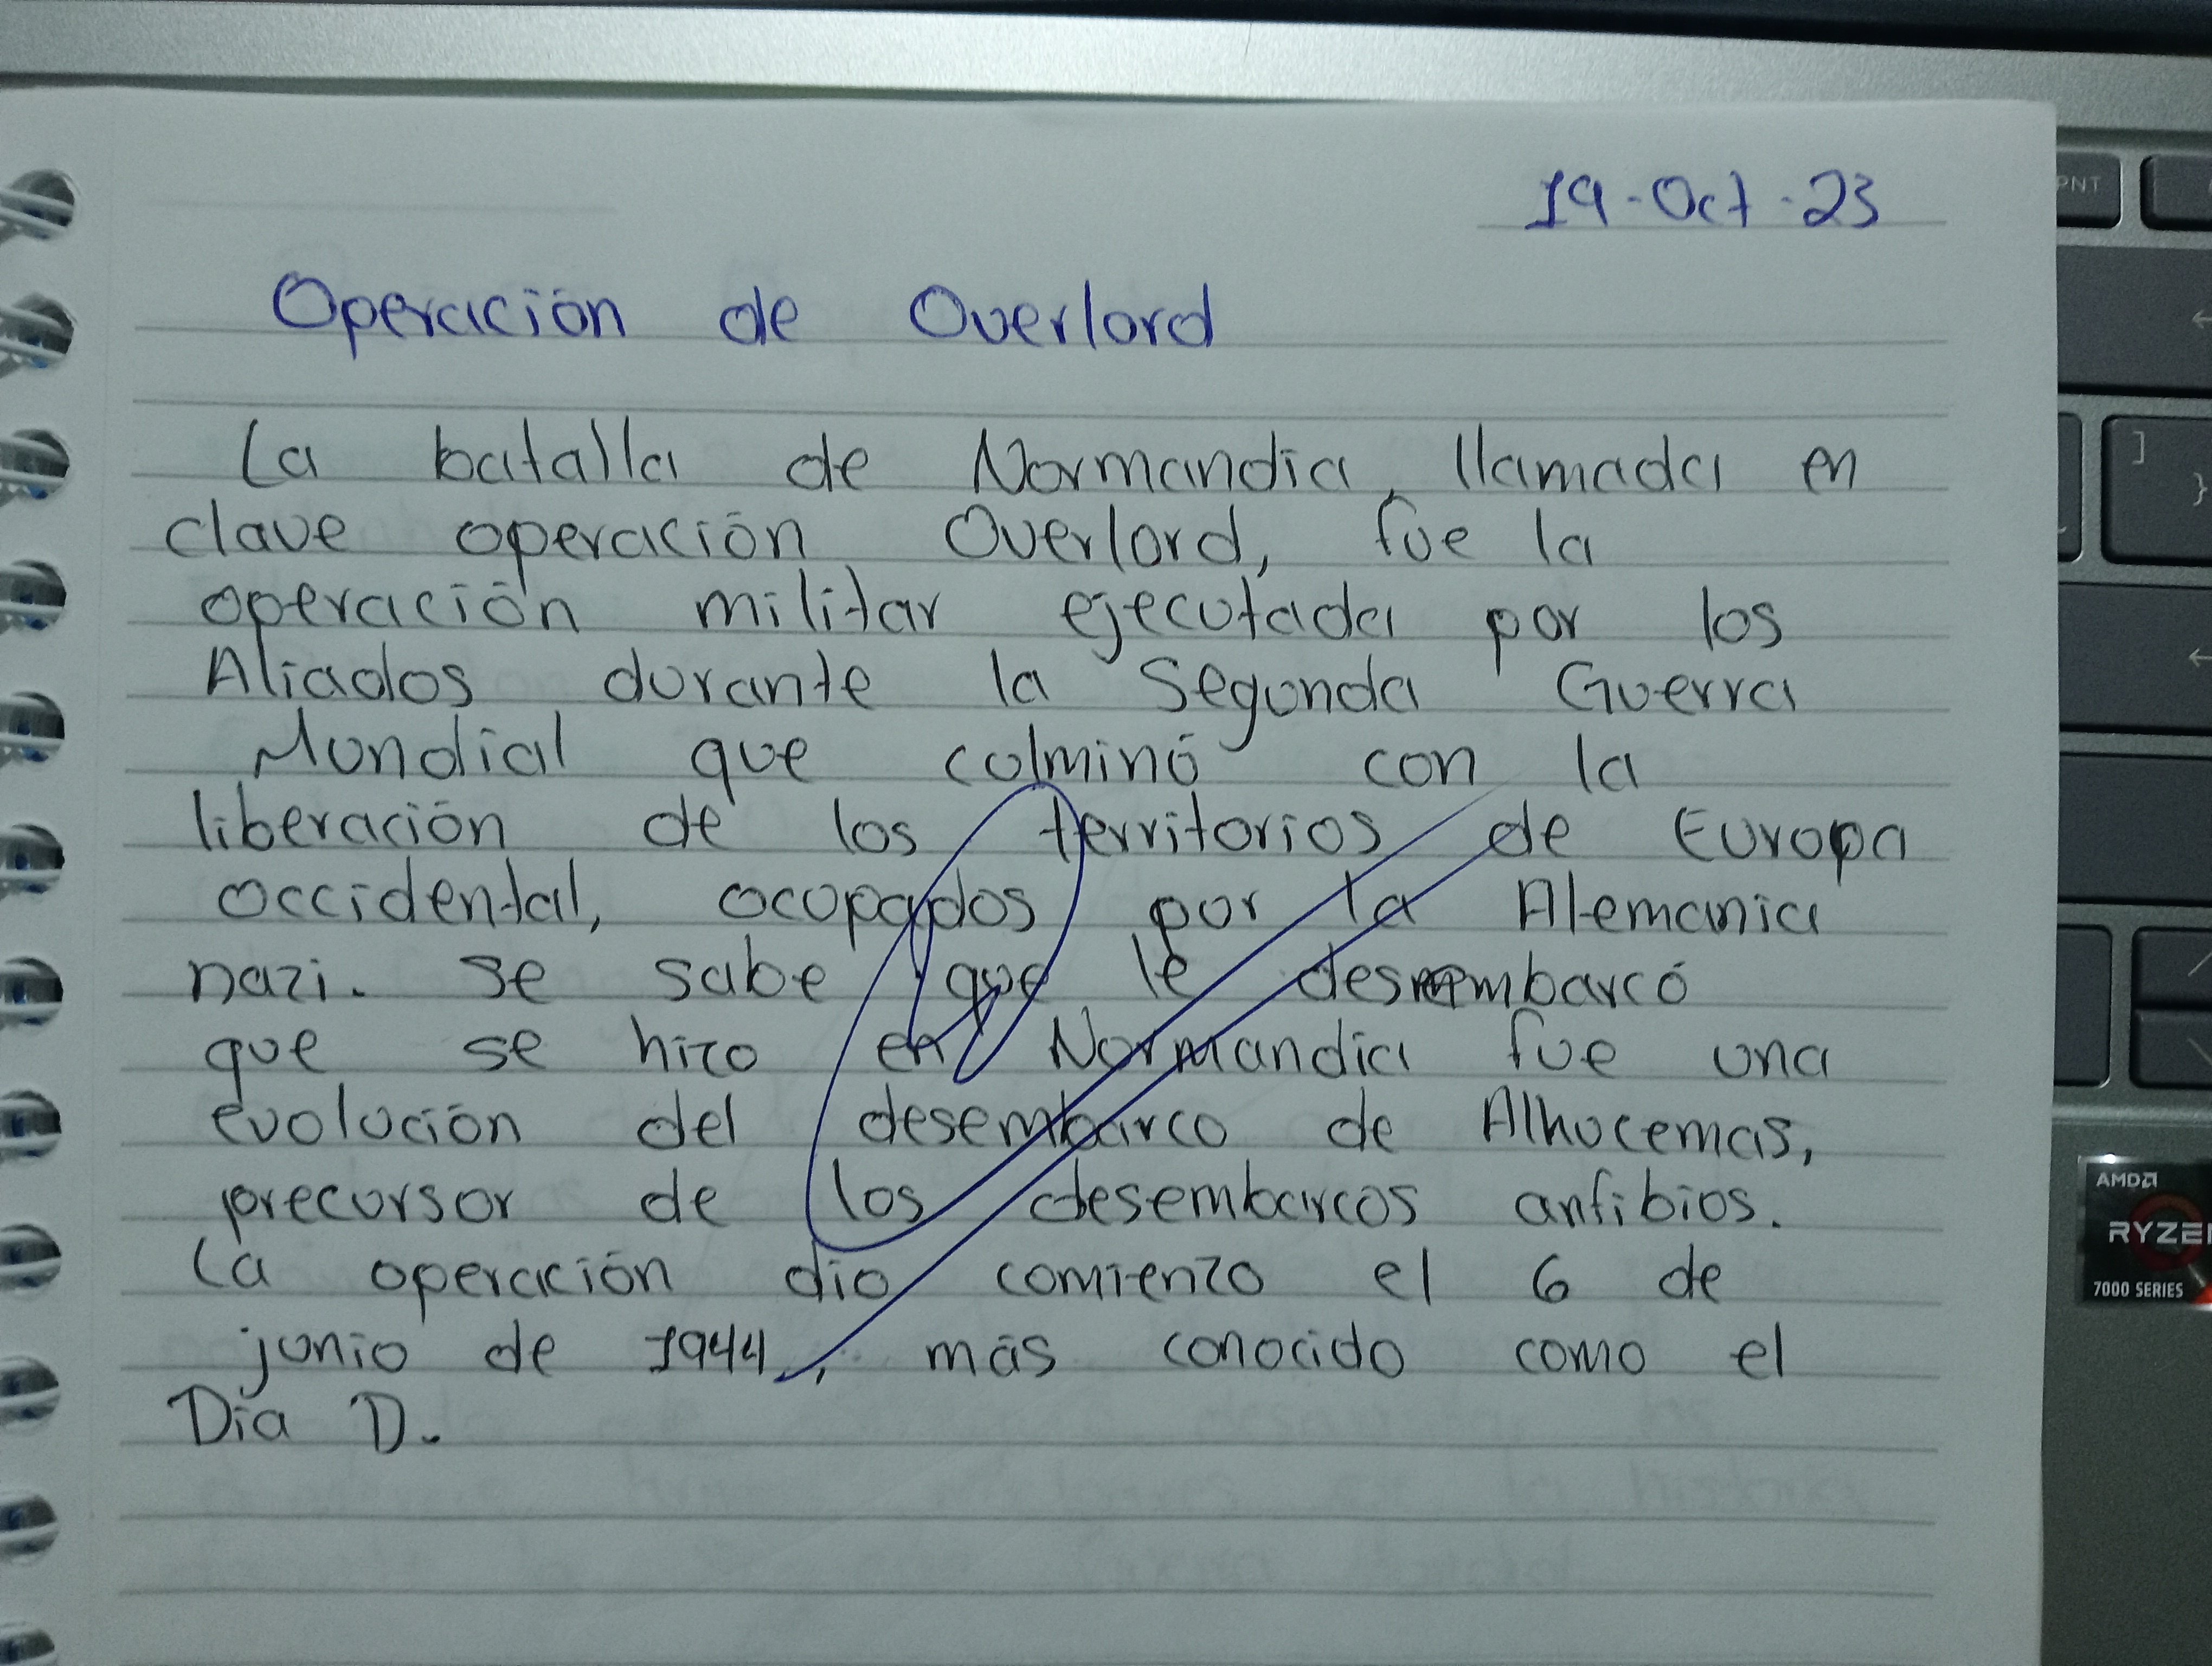 19-Oct-23
Operación de Overlord
La batalla de Normandia, llamada en
clave operación Overlord, fue la
operación militar ejecutada por los
Aliados durante la Segunda Guerra
Mundial que culminó con la
liberación de los territorios de Europa
occidental, ocupados por la Alemania
nazi. se sabe que le desembarcó
que se hizo en Normandia fue una
evolución del desembarco de Alhucemas,
precursor de los desembarcos anfibios.
La operación dio comienzo el 6 de
junio de 1944, más conocido como el
Día D.
PNT
]
}
AMD
RYZE
7000 SERIES